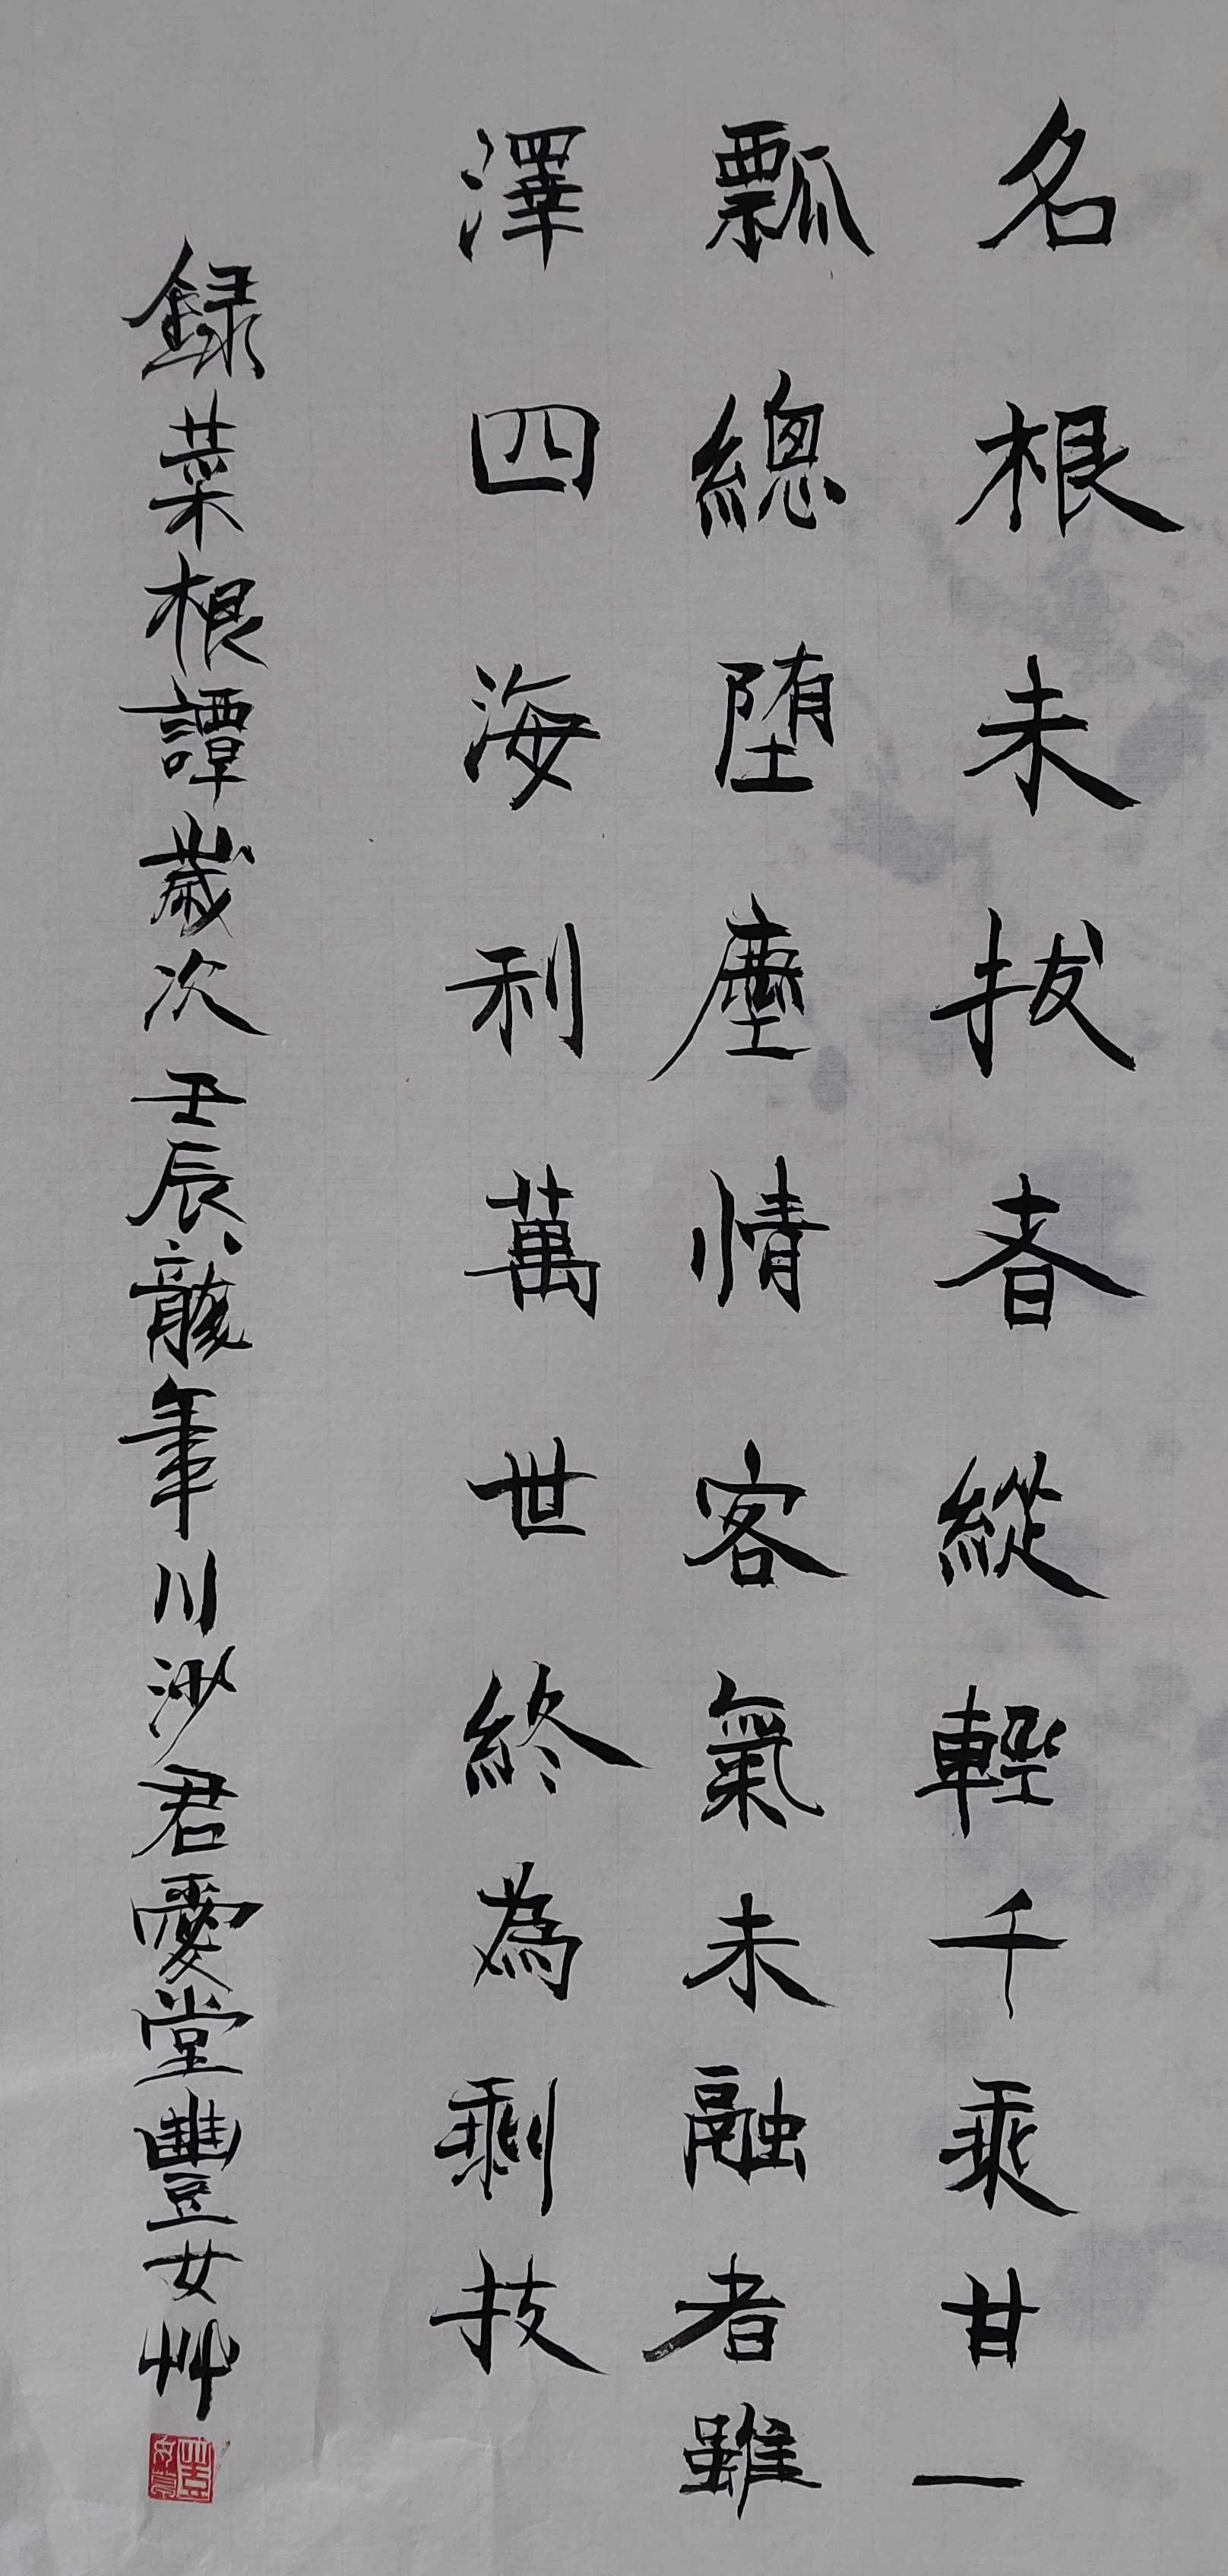 名根未拔者縱輕千乘甘一
瓢總堕塵情客氣未融者雖
澤四海利萬世終為剩技
録菜根譚歲次壬辰龍年川沙君愛堂豐女艸